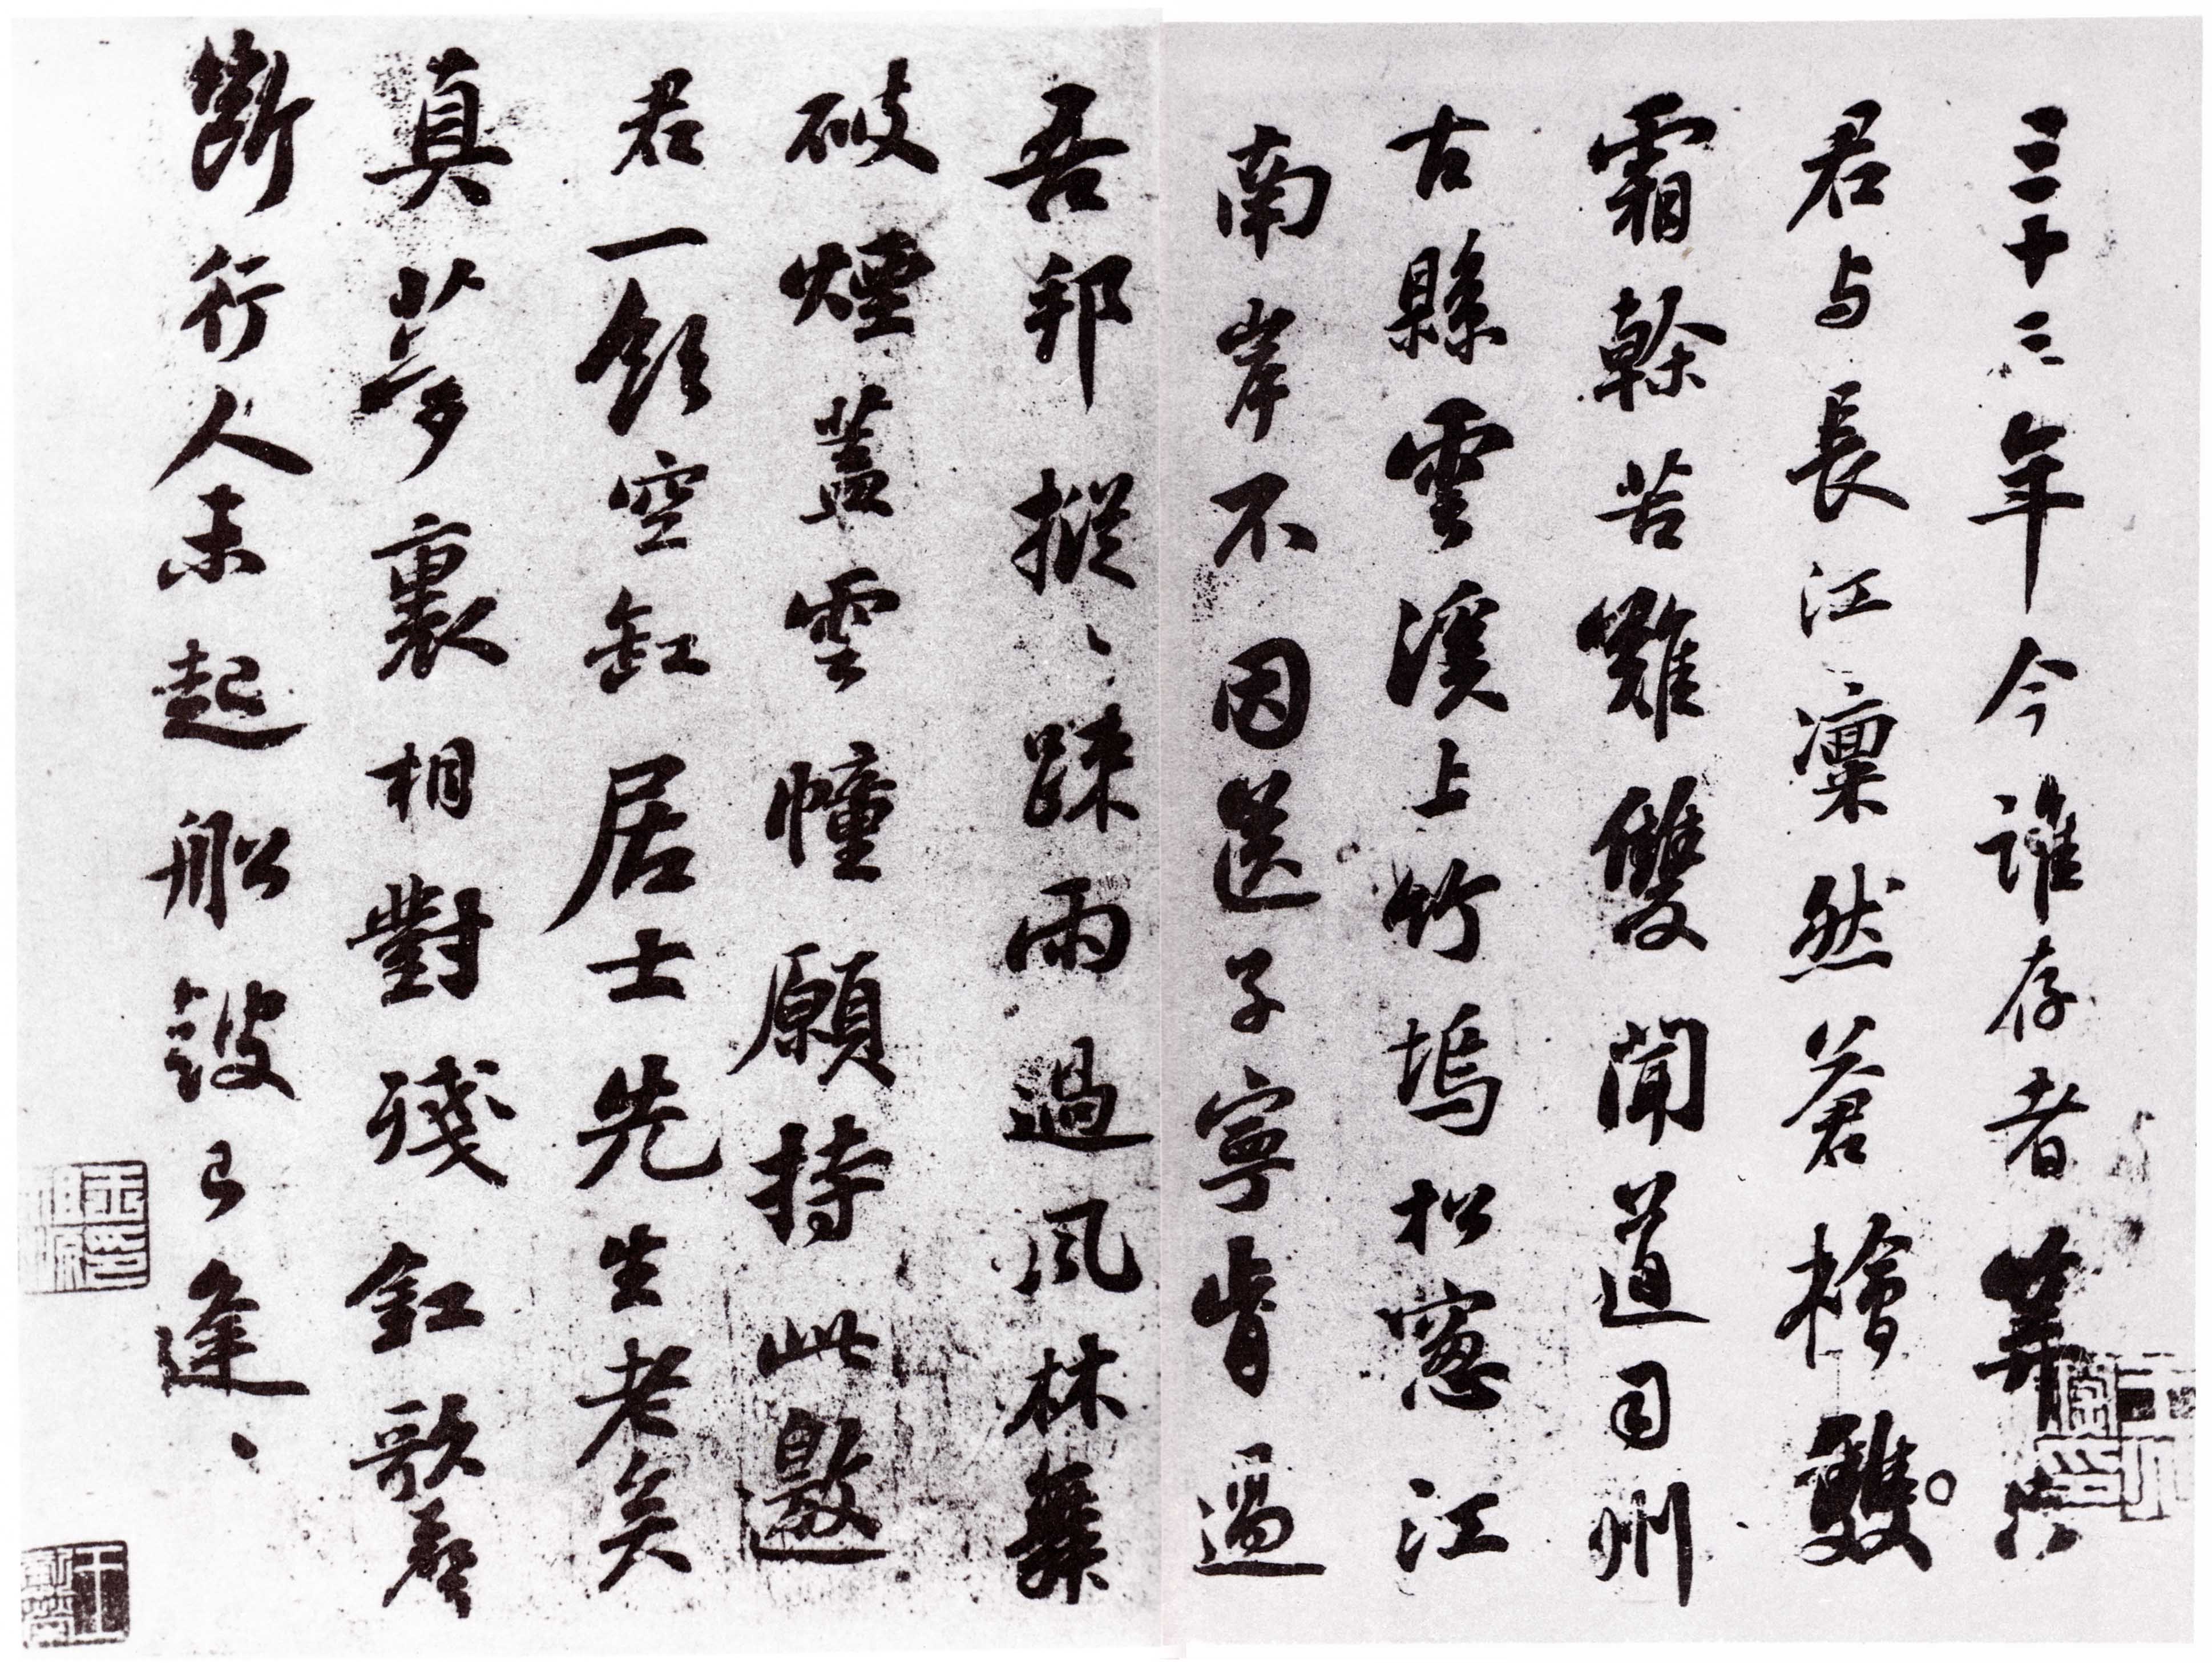 三十三年今誰存者算只
君与長江凜然蒼檜雙
霜幹苦難雙聞道司州
古縣雲溪上竹塢松窓江
南岸不因送子寧肯過
吾邦摐、踈雨過風林舞
破煙蓋雲幢願持此邀
君一飲空缸居士先生老矣
真夢裏相對殘釭歌聲
斷行人未起船鼓已逢、